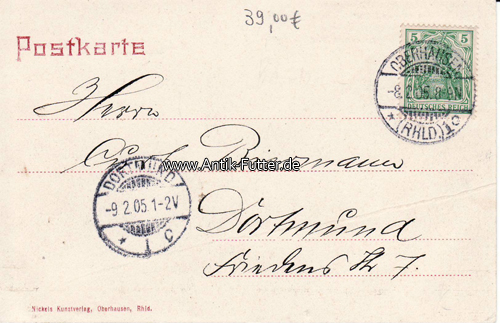 39,00€
Postkarte
5 5
DEUTSCHES REICH
OBERHAUSEN
-8.2.05.8-9N
* (RHLD.) 1 c
Herrn
Carl Biermann
www.Antik-Futter.de
DORTMUND
-9.2.05.1-2V
* 1 c
Dortmund
Friedens Str 7.
Nickels Kunstverlag, Oberhausen, Rhld.